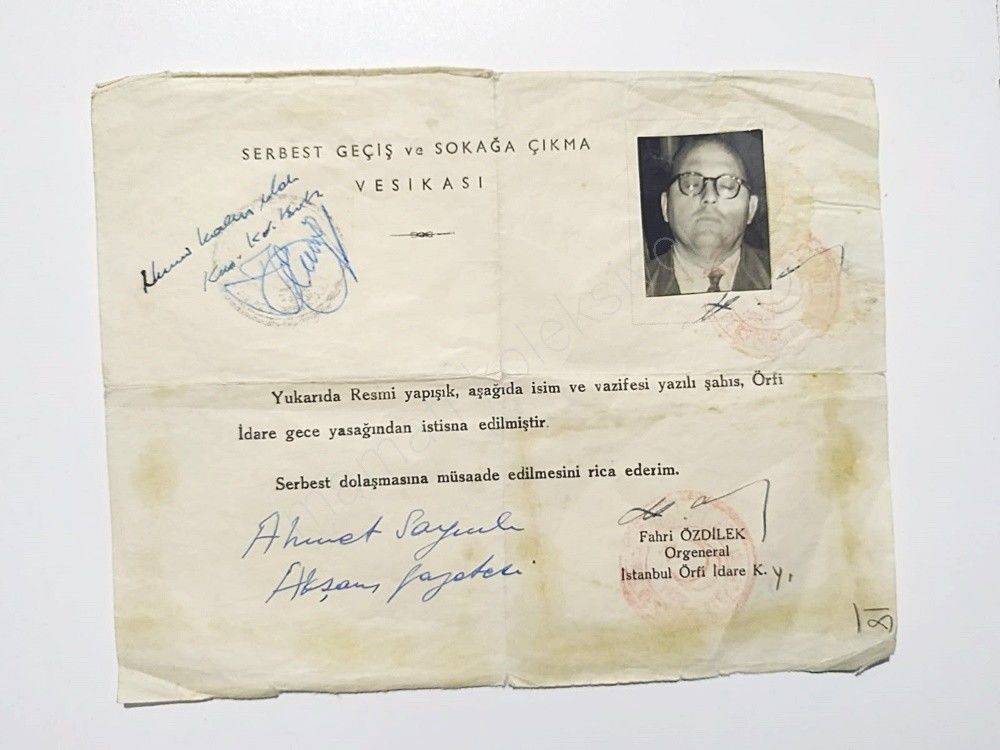 SERBEST GEÇİŞ ve SOKAĞA ÇIKMA
VESİKASI
Yukarıda Resmi yapışık, aşağıda isim ve vazifesi yazılı şahıs, Örfi
İdare gece yasağından istisna edilmiştir.
Serbest dolaşmasına müsaade edilmesini rica ederim.
Ahmet
Akşam gazetesi
Fahri ÖZDİLEK
Orgeneral
İstanbul Örfi İdare K. y.